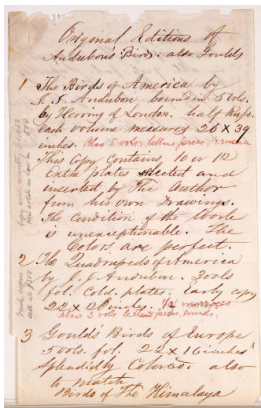 Original Editions of
Audubons Birds. also Goulds
1 The Birds of America by
J. J. Audubon bound in 5 Vols.
by Hering of London. half Russ.
Each volume measures 26 X 39
inches. also 5 vols. letter press,
This Copy contains, 10 or 12
Extra plates selected and
inserted by The Author
from his own Drawings.
The Condition of the Work
is unexceptionable. The
Colors are perfect.
2 The Quadrupeds of America
by J. J. Audubon. 3 vols
fol. Cold. plates. Early copy
22 X 28 inches.
also 3 vols letter press, bound.
3 Gould's Birds of Europe
5 vols. fol. 22 X 16 inches
Splendidly Colored. also
to match
Birds of The Himalaya